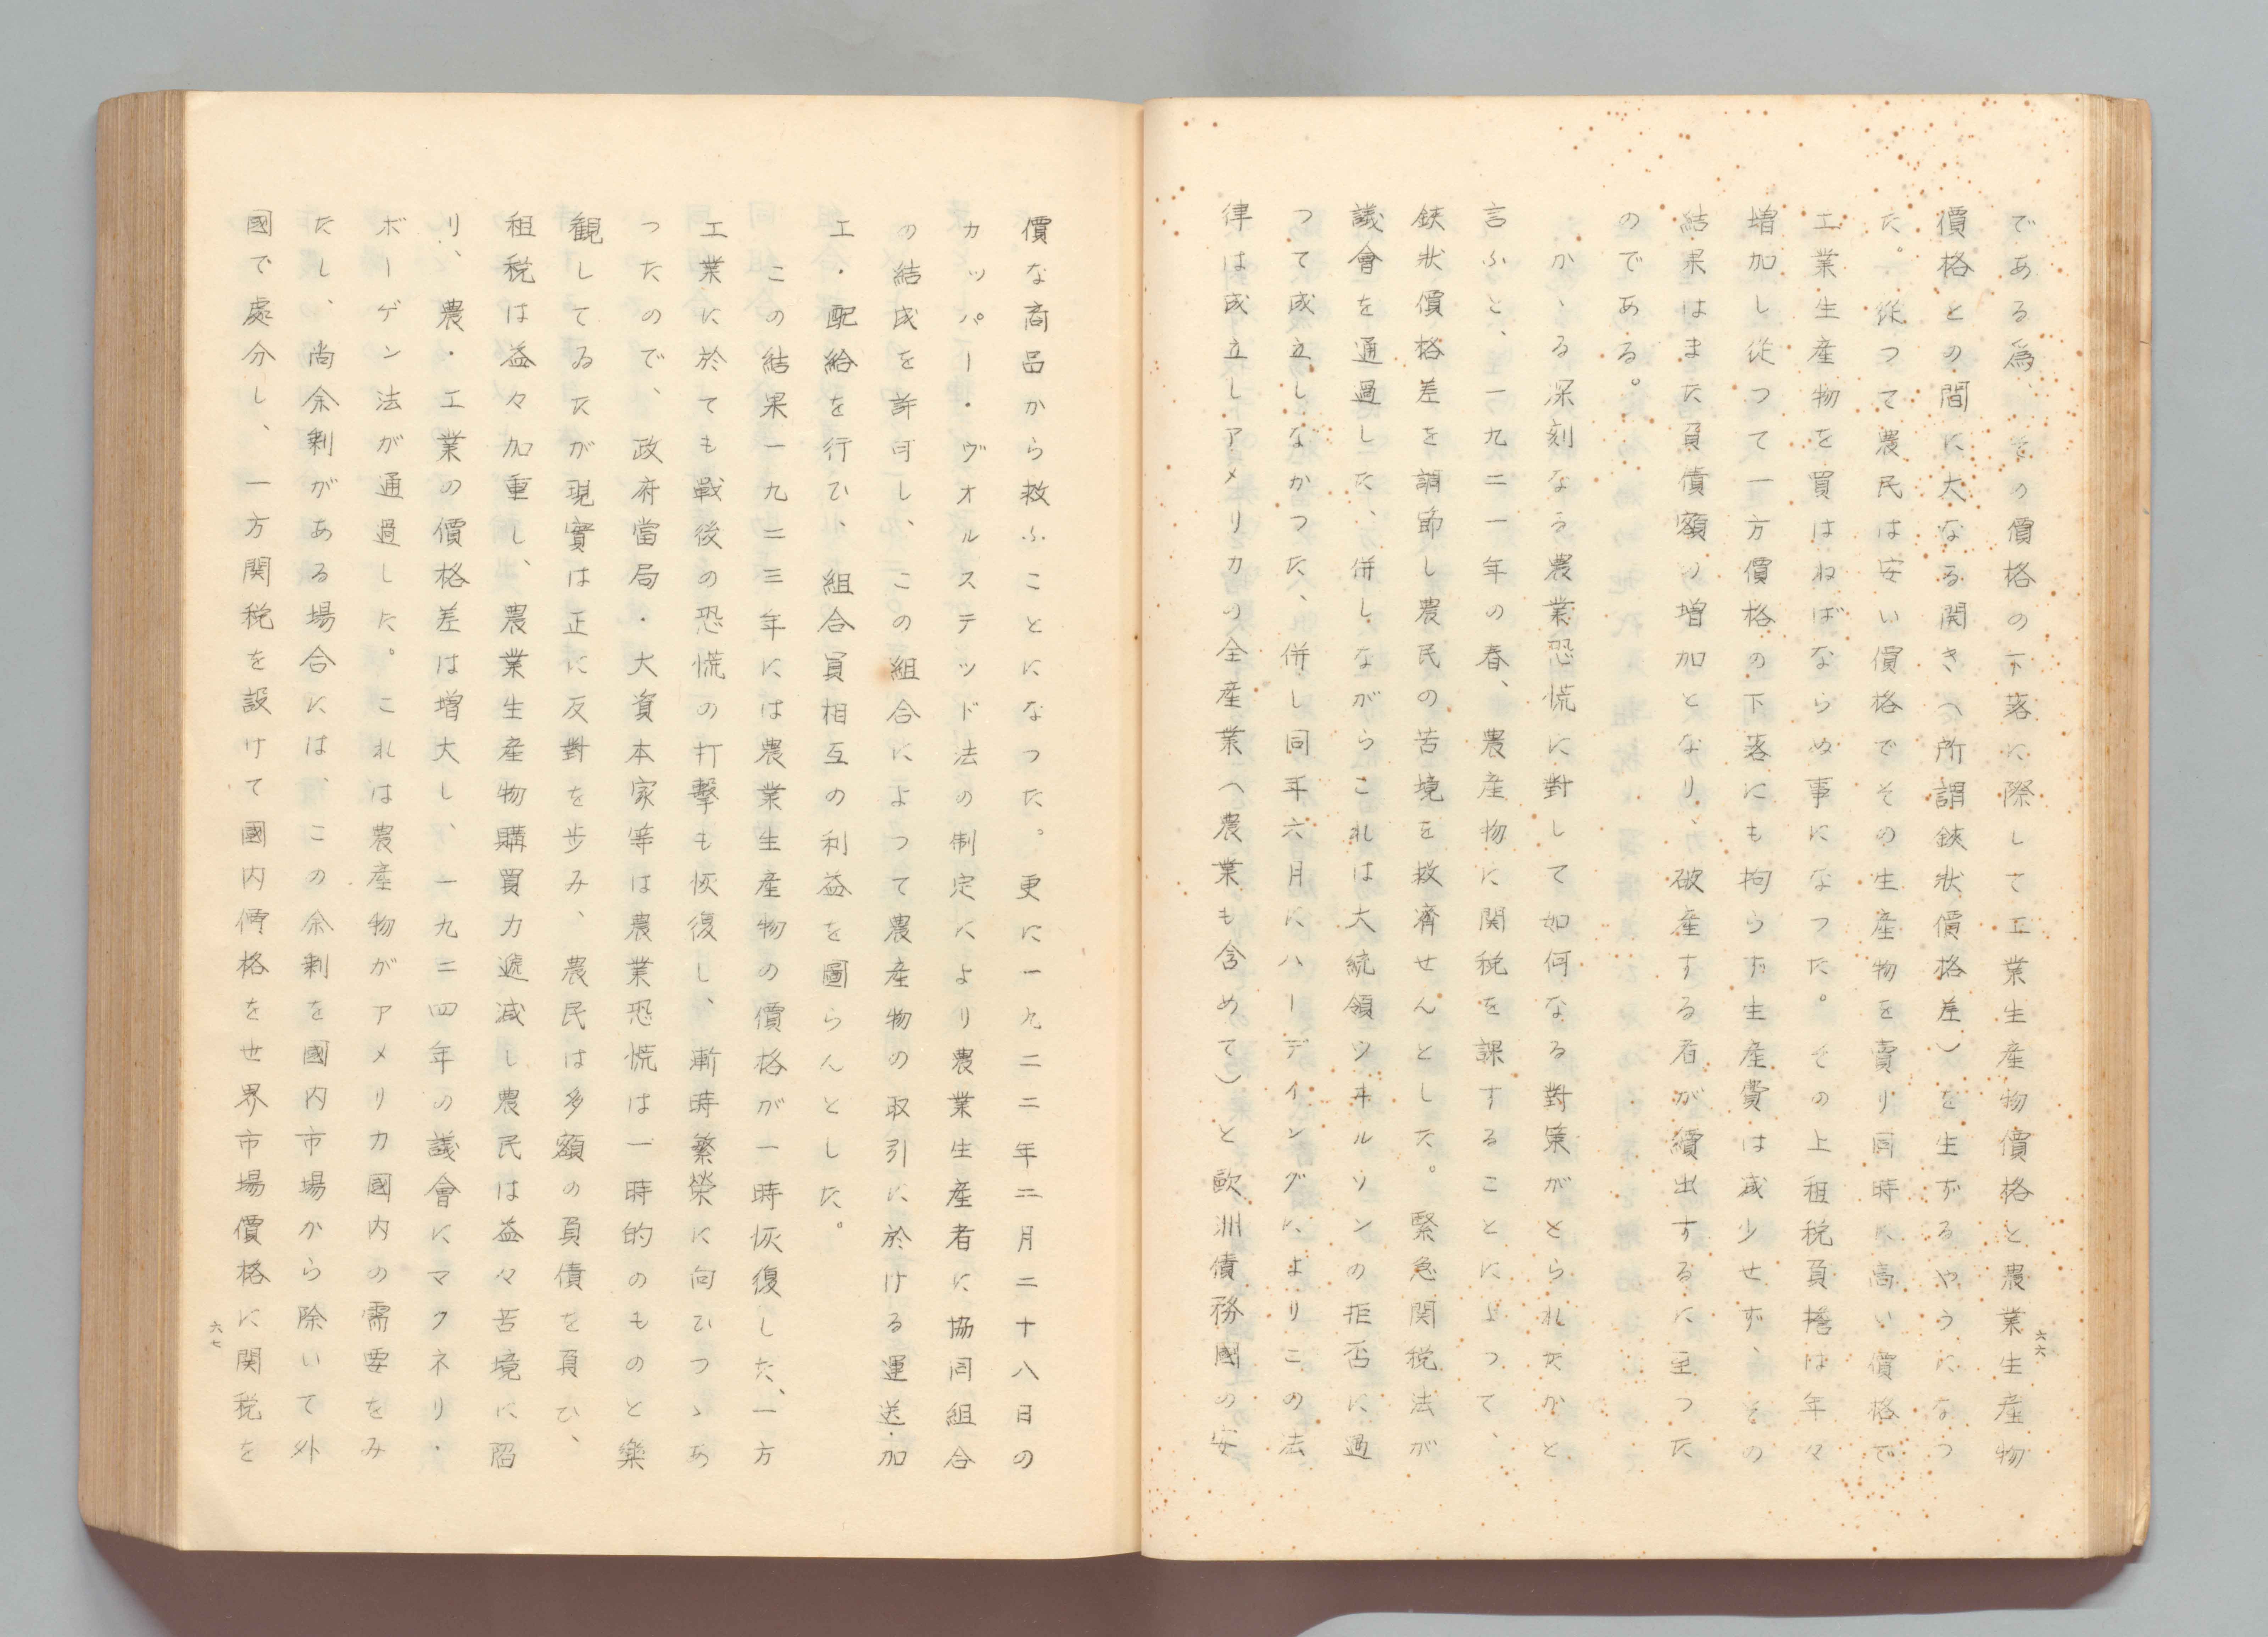 である爲、その價格の下落に際して工業生産物價格と農業生産物
價格との間に大なる開き（所謂鋏状價格差）を生ずるやうになつ
た。従つて農民は安い價格でその生産物を賣り同時に高い價格で
工業生産物を買はねばならぬ事になつた。その上租税負擔は年々
増加し従つて一方價格の下落にも拘らず生産費は減少せず、その
結果はまた負債額の増加となり、破産する者が續出するに至つた
のである。
かゝる深刻なる農業恐慌に對して如何なる對策がとられたかと
言ふと、一九二一年の春、農産物に関税を課することによつて、
鋏状價格差を調節し農民の苦境を救濟せんとした。緊急関税法が
議會を通過した、併しながらこれは大統領ウヰルソンの拒否に遇
つて成立しなかつた、併し同年六月にハーデイングによりこの法
律は成立しアメリカの全産業（農業も含めて）と歐洲債務國の安
六六
價な商品から救ふことになつた。更に一九二二年二月二十八日の
カッパー・ヴオルステッド法の制定により農業生産者に協同組合
の結成を許可し、この組合によつて農産物の取引に於ける運送・加
工・配給を行ひ、組合員相互の利益を圖らんとした。
この結果一九二三年には農業生産物の價格が一時恢復した、一方
工業に於ても戰後の恐慌の打撃も恢復し、漸時繁榮に向ひつゝあ
つたので、政府當局・大資本家等は農業恐慌は一時的のものと樂
観してゐたが現實は正に反對を歩み、農民は多額の負債を負ひ、
租税は益々加重し、農業生産物購買力遞減し農民は益々苦境に陷
り、農・工業の價格差は増大し、一九二四年の議會にマクネリ・
ボーゲン法が通過した。これは農産物がアメリカ國内の需要をみ
たし、尚余剰がある場合には、この余剰を國内市場から除いて外
國で處分し、一方関税を設けて國内價格を世界市場價格に関税を
六七